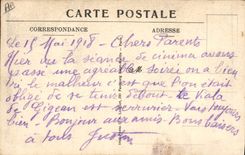 CARTE POSTALE
CORRESPONDANCE ADRESSE
Le 18 Mai 1918 - Chers Parents
Hier au la séance de cinéma avons
passé une agréable soirée on a bien
ri le malheur c'est que l'on était
obligé de se tenir debout. le
Pigeon est serrurier - Vais toujours
bien. Bonjour aux amis. Bons baisers
à tous